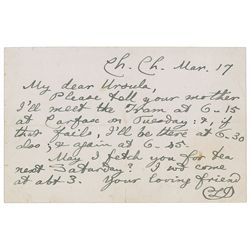 Ch. Ch. Mar. 17
My dear Ursula,
Please tell your mother
I'll meet the tram at 6-15
at Carfax on Tuesday: &, if
that fails, I'll be there at 6-30
also, & again at 6-45.
May I fetch you for tea
next Saturday? I wd come
at abt 3. Your loving friend
CLD